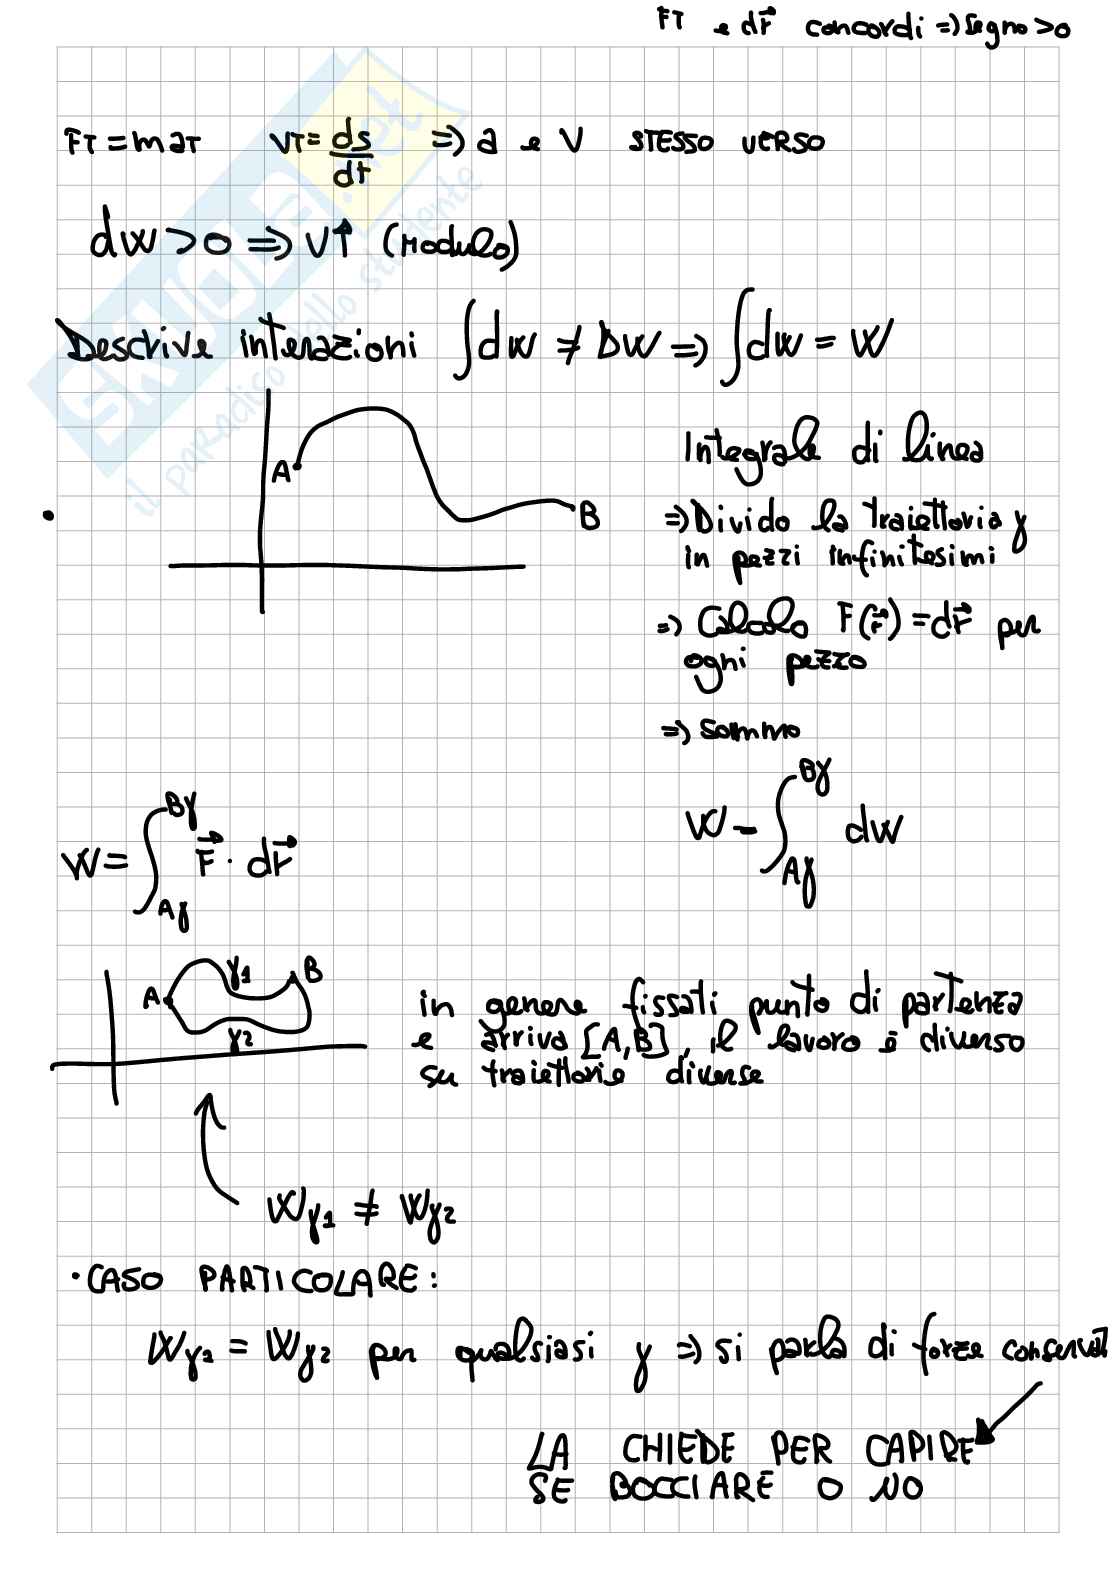 FT e d𝑟⃗ concordi => segno > 0
FT = m aT   VT = ds/dt => a e V STESSO VERSO
dw > 0 => V↑ (Modulo)
Descrive interazioni ∫dw ≠ Dw => ∫dw = W
A
B
Integrale di linea
=> Divido la traiettoria γ
in pezzi infinitesimi
=> Calcolo F(r⃗) = dr⃗ per
ogni pezzo
=> sommo
W - ∫ Aγ Bγ dw
W = ∫ Aγ Bγ F⃗ · dr⃗
A γ1 B
γ2
in genere fissati punto di partenza
e arrivo [A,B], il lavoro è diverso
su traiettorie diverse
Wγ1 ≠ Wγ2
· CASO PARTICOLARE:
Wγ1 = Wγ2 per qualsiasi γ => si parla di forze conservat
LA CHIEDE PER CAPIRE
SE BOCCIARE O NO
SKUOLA.net
il paradiso dello studente